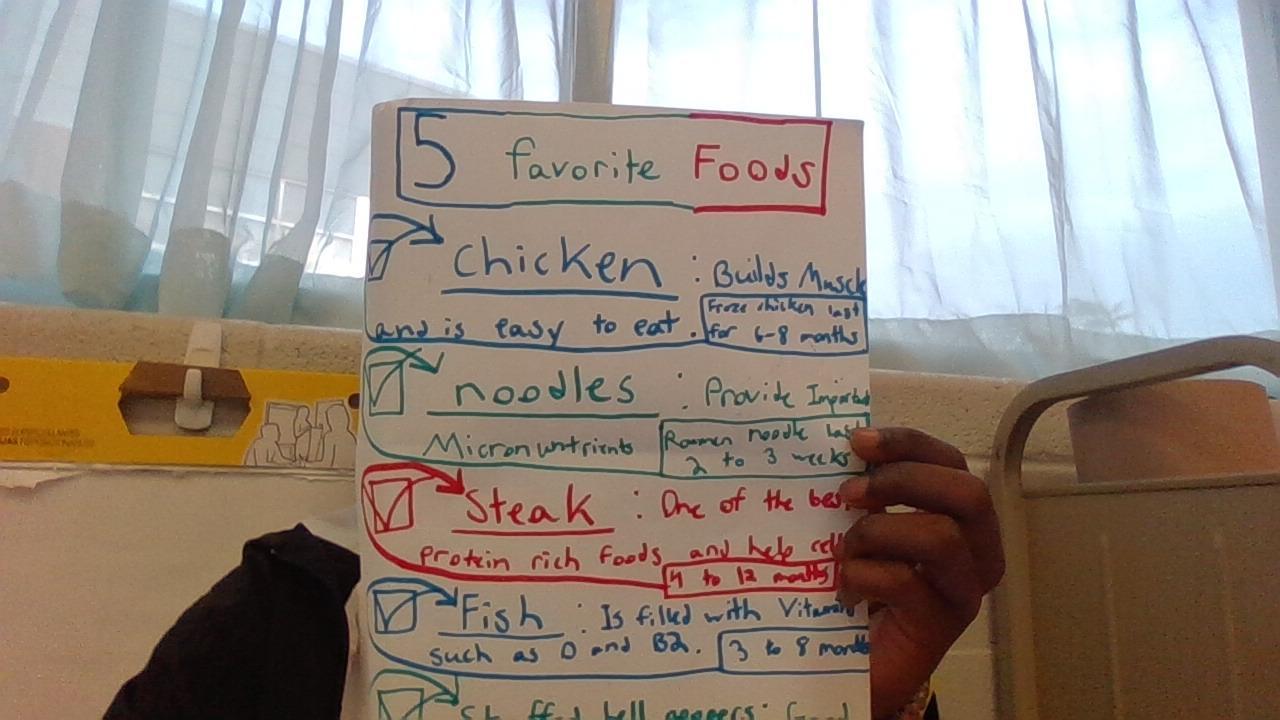 5 favorite Foods
chicken : Builds Muscle
and is easy to eat.
Froze chicken last
for 6-8 months
noodles : Provide Important
Micronuntrients
Ramen noodle last
2 to 3 weeks
Steak : One of the best
protein rich foods and help cell
4 to 12 months
Fish : Is filled with Vitamins
such as D and B2.
3 to 8 months
Stuffed bell peppers: Good